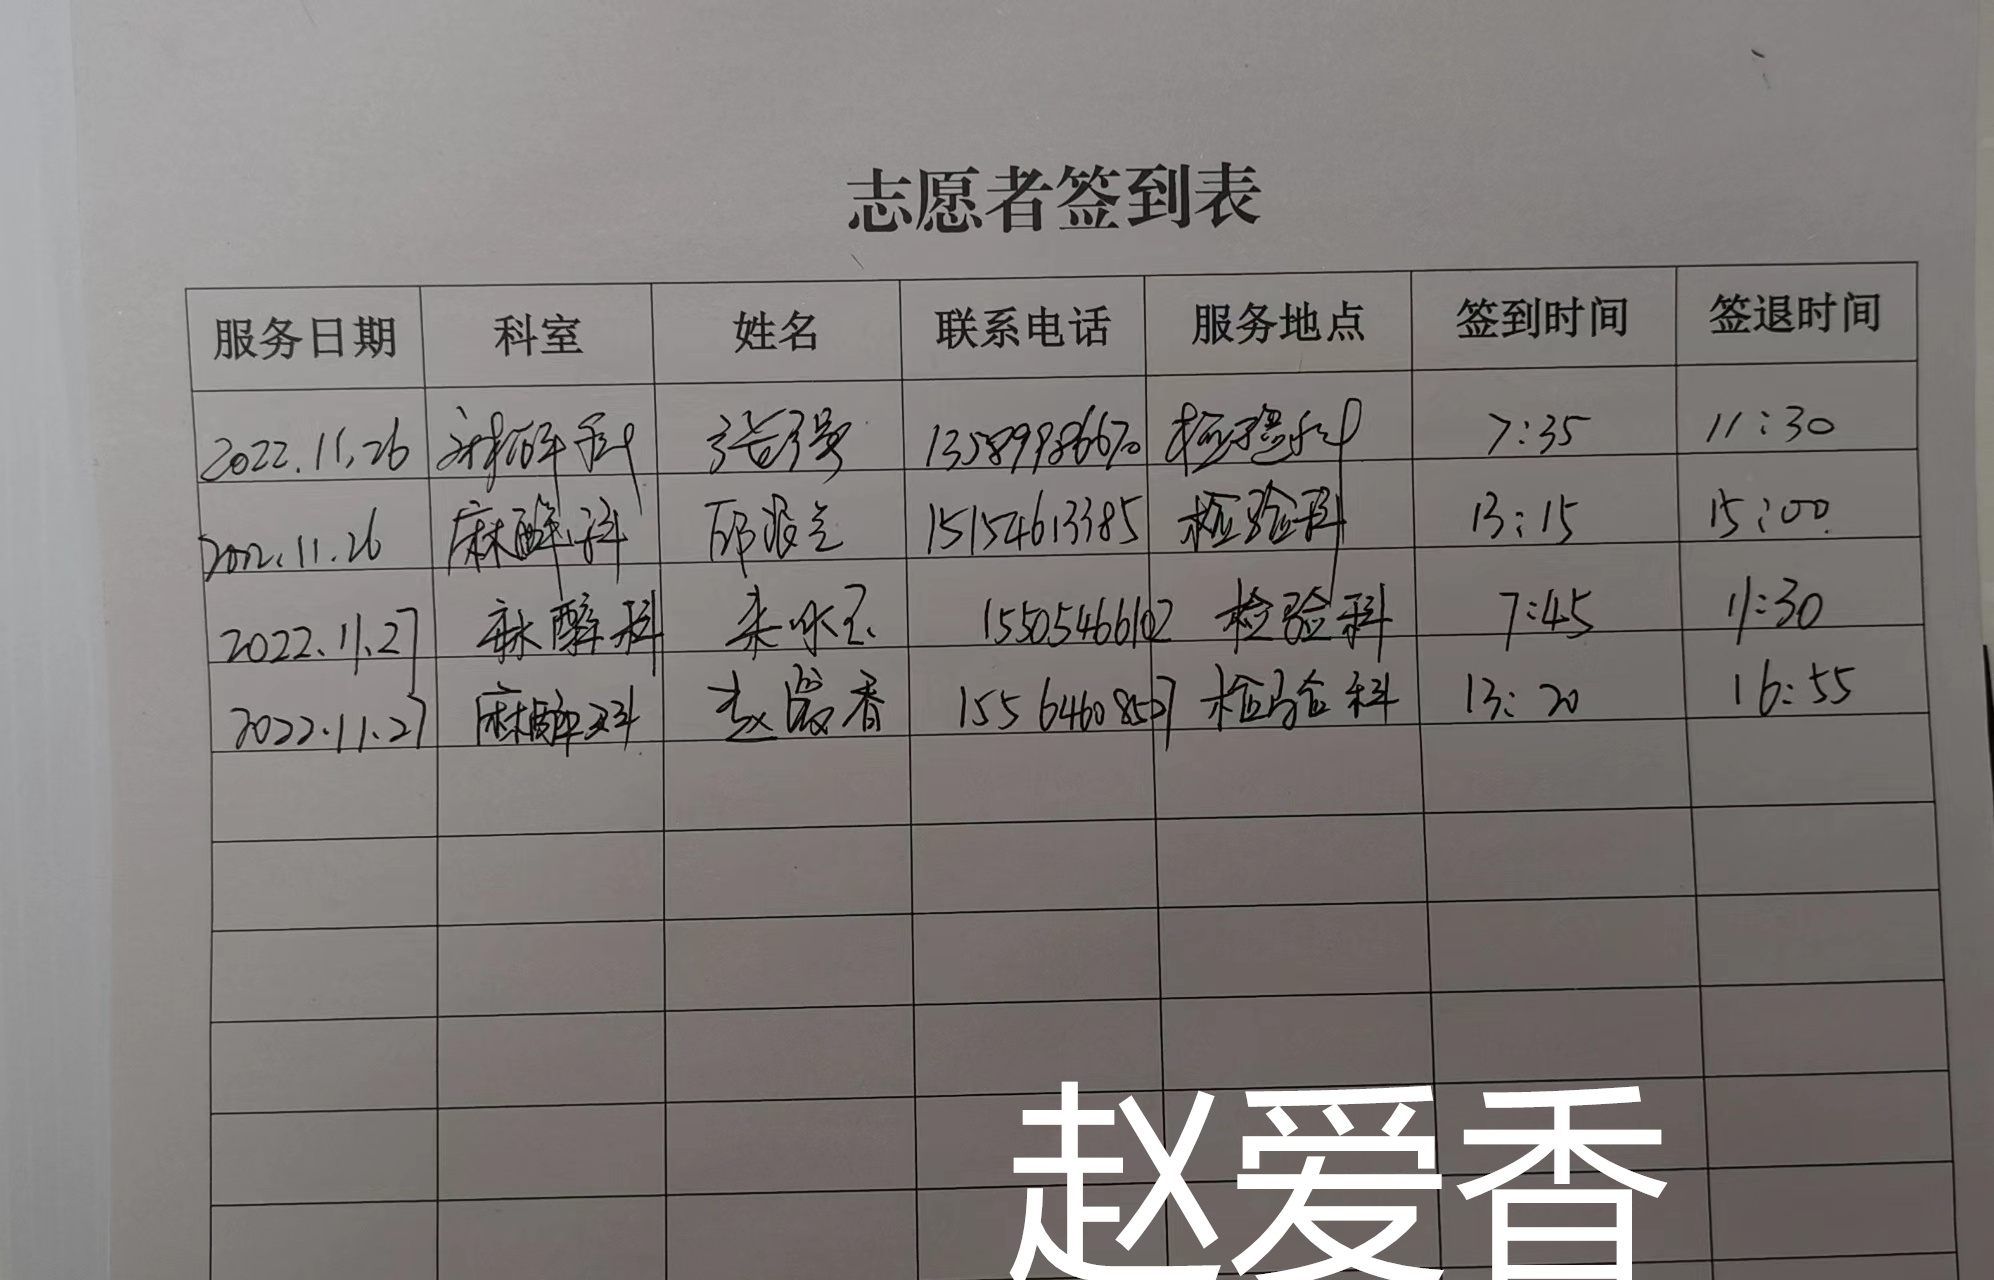 志愿者签到表
服务日期 科室 姓名 联系电话 服务地点 签到时间 签退时间
2022.11.26 麻醉科 张强 13589986670 检验科 7:35 11:30
2022.11.26 麻醉科 邱 15154613385 检验科 13:15 15:00
2022.11.27 麻醉科 15505466102 检验科 7:45 11:30
2022.11.27 麻醉科 赵爱香 15564608507 检验科 13:20 16:55
赵爱香